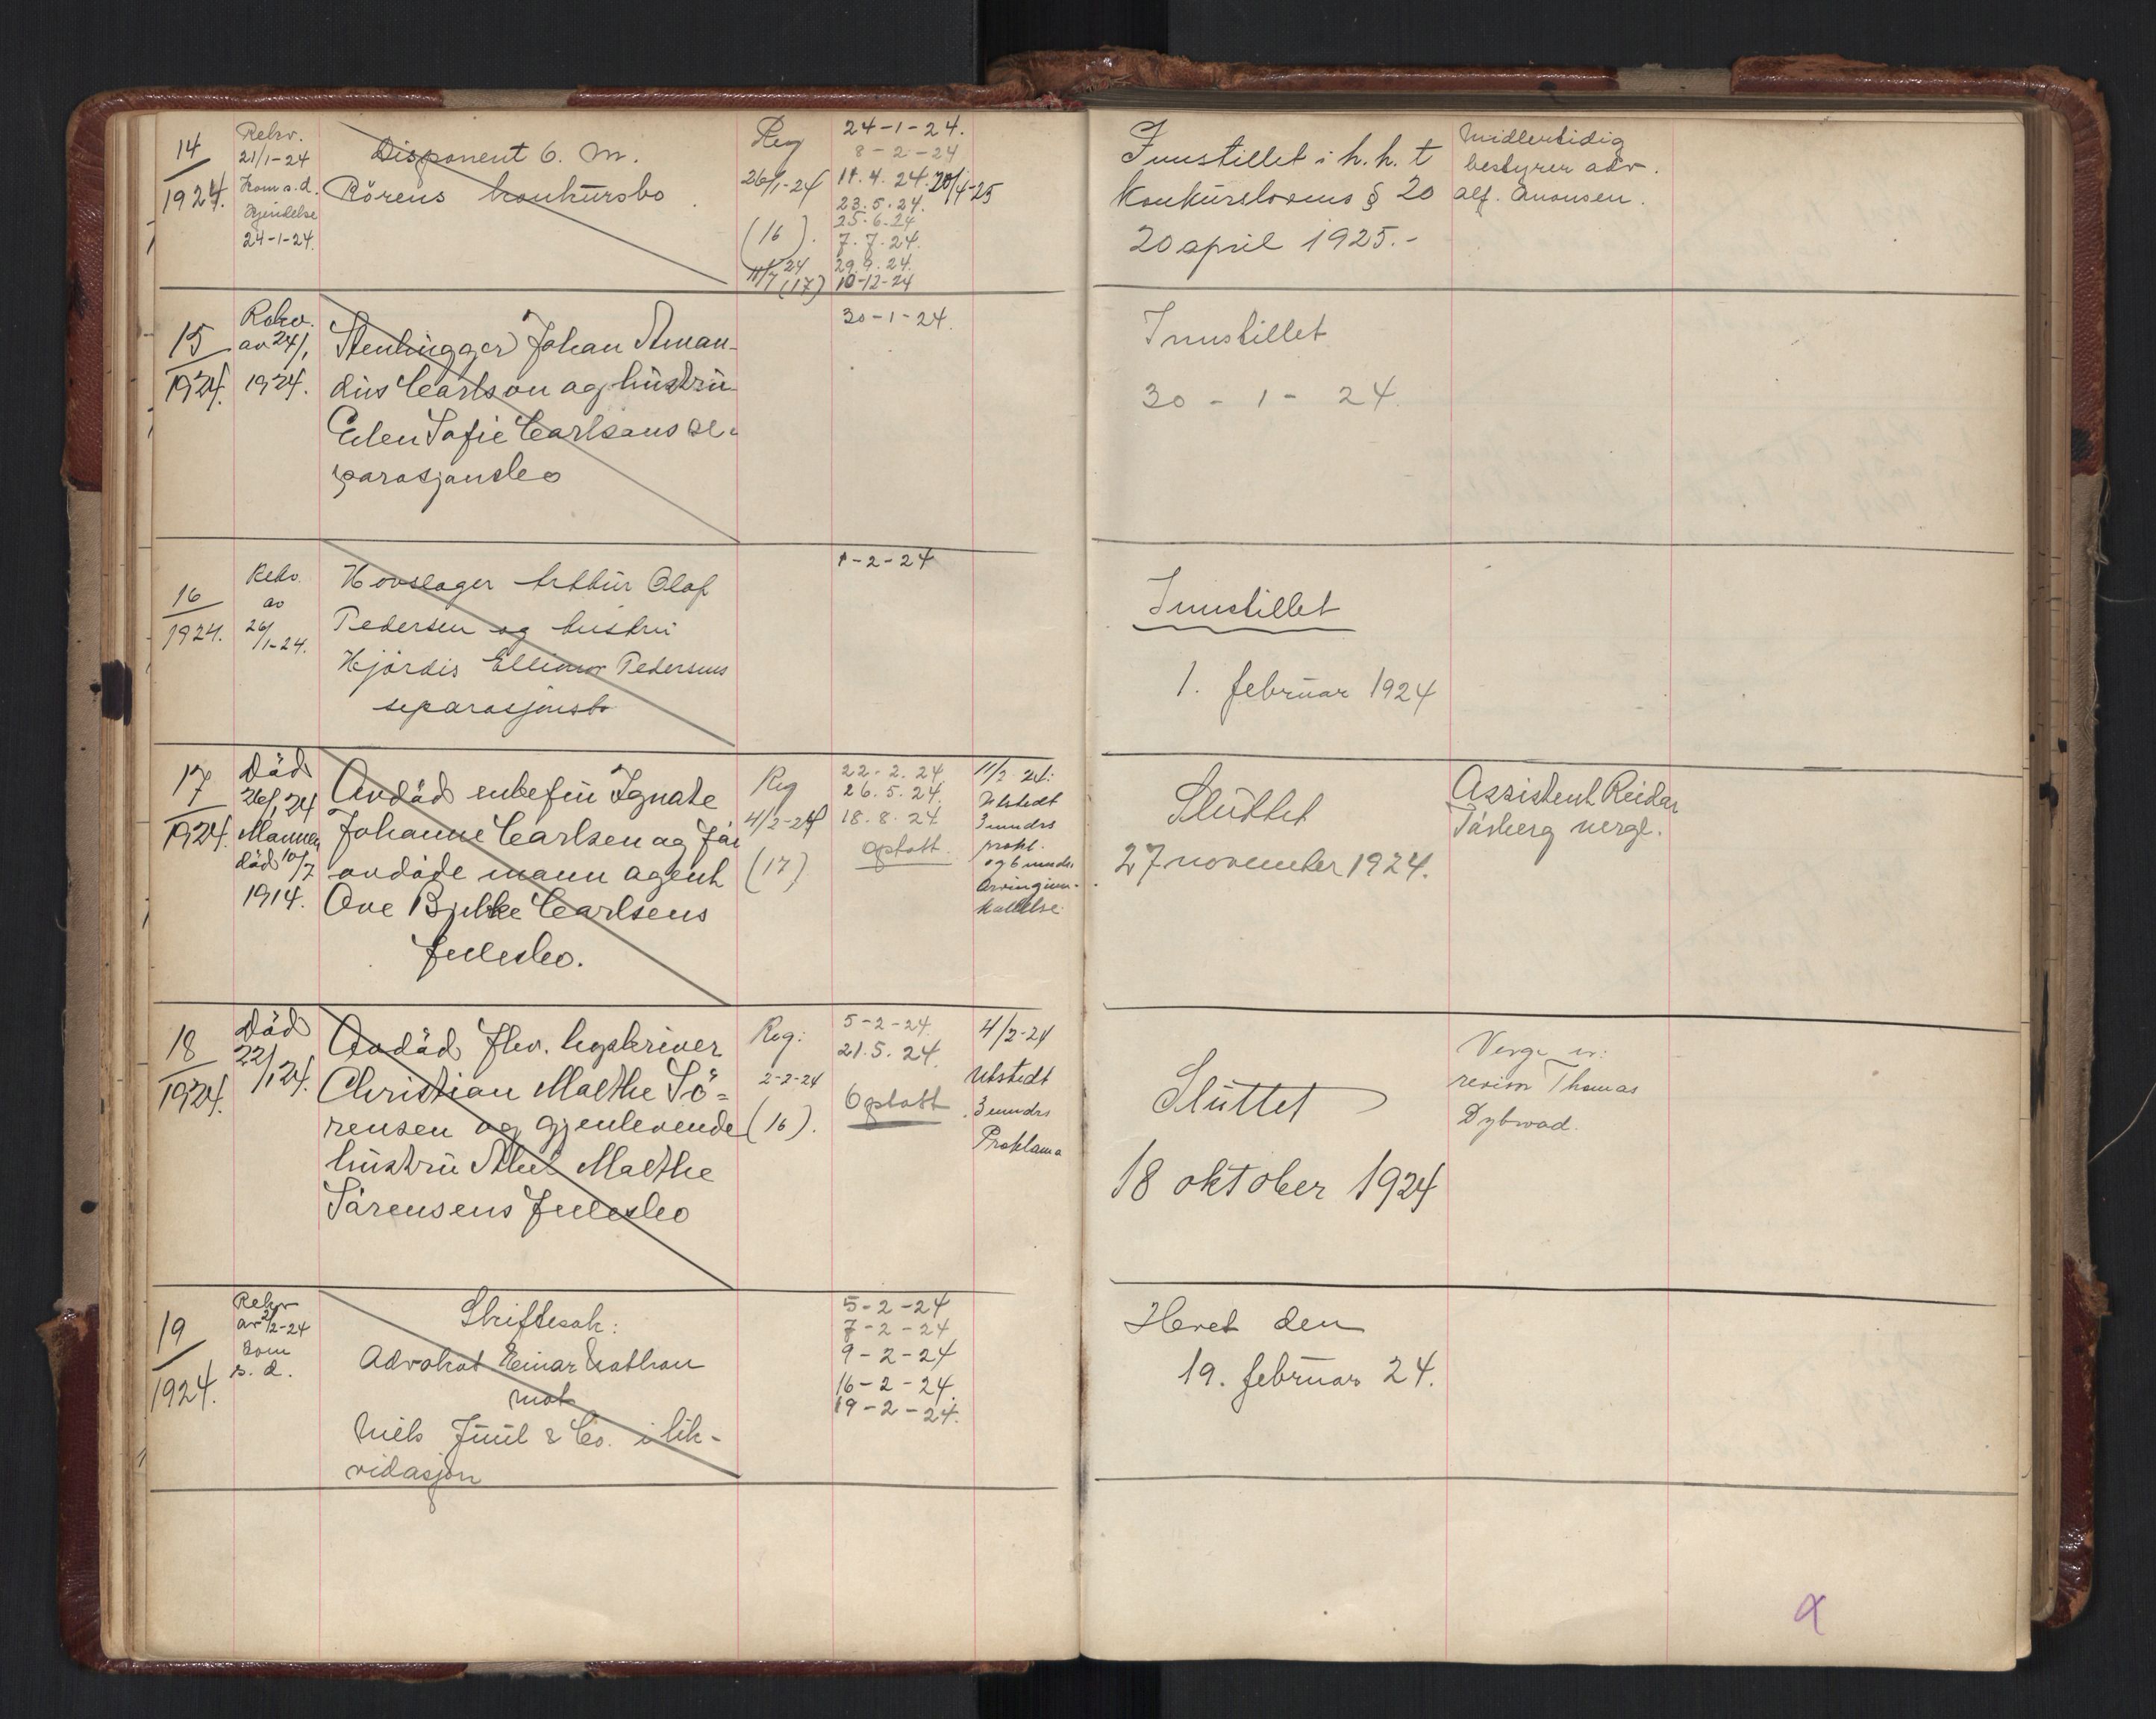 14
1924.
Rekv.
21/1-24
Kom s.d.
Kjendelse
24-1-24.
Disponent C. M.
Rörens konkursbo
Reg
26/1-24
(16).
11/7 24
(17)
24-1-24.
8-2-24
11.4.24.
23.5.24.
25.6.24
7.7.24.
29.9.24.
10-12-24
20/4-25
Innstillet i h.h.t
Konkurslovens § 20
20 april 1925.-
Midlertidig
bestyrer adv.
alf. Anonsen.
15
1924.
Rekv.
av 24/1
1924.
Stenhugger Johan Aman-
dus Carlson og hustru
Ellen Sofie Carlsons se-
parasjonsbo
30-1-24.
Innstillet
30-1-24.
16
1924.
Rekv.
av
26/1-24.
Hovslager Arthur Olaf
Pedersen og hustru
Hjördis Ellinor Pedersens
separasjonsbo
1-2-24
Innstillet
1. februar 1924
17
1924.
Död
26/1 24
Mannen
död 10/7
1914.
Avdöd enkefru Ignate
Johanne Carlsen og för
avdöde mann agent
Ove Bjelke Carlsens
fellesbo.
Reg
4/2-24
(17)
22.2.24.
26.5.24.
18.8.24.
Optatt.
11/2 24:
Utstedt
3 mndrs
prokl.
og 6 mndrs
arvinginn-
kallelse.
Sluttet
27 november 1924.
Assistent Reidar
Tårberg verge.
18
1924.
Död
22/1 24.
Avdöd fhv. byskriver
Christian Malthe Sö-
rensen og gjenlevende
hustru Malthe
Sörensens fellesbo
Reg:
2-2-24
(16).
5-2-24.
21.5.24.
Optatt
4/2-24
Utstedt
3 mndrs
Proklama
Sluttet
18 oktober 1924
Verge er:
revisor Thomas
Dybwad.
19
1924.
Rekv
av 2/2-24
Kom
s.d.
Skiftesak:
Advokat Einar Nathan
mot
Niels Juul & Co. i lik-
vidasjon
5-2-24
7-2-24
9-2-24
16-2-24.
19-2-24.
Hevet den
19. februar 24.